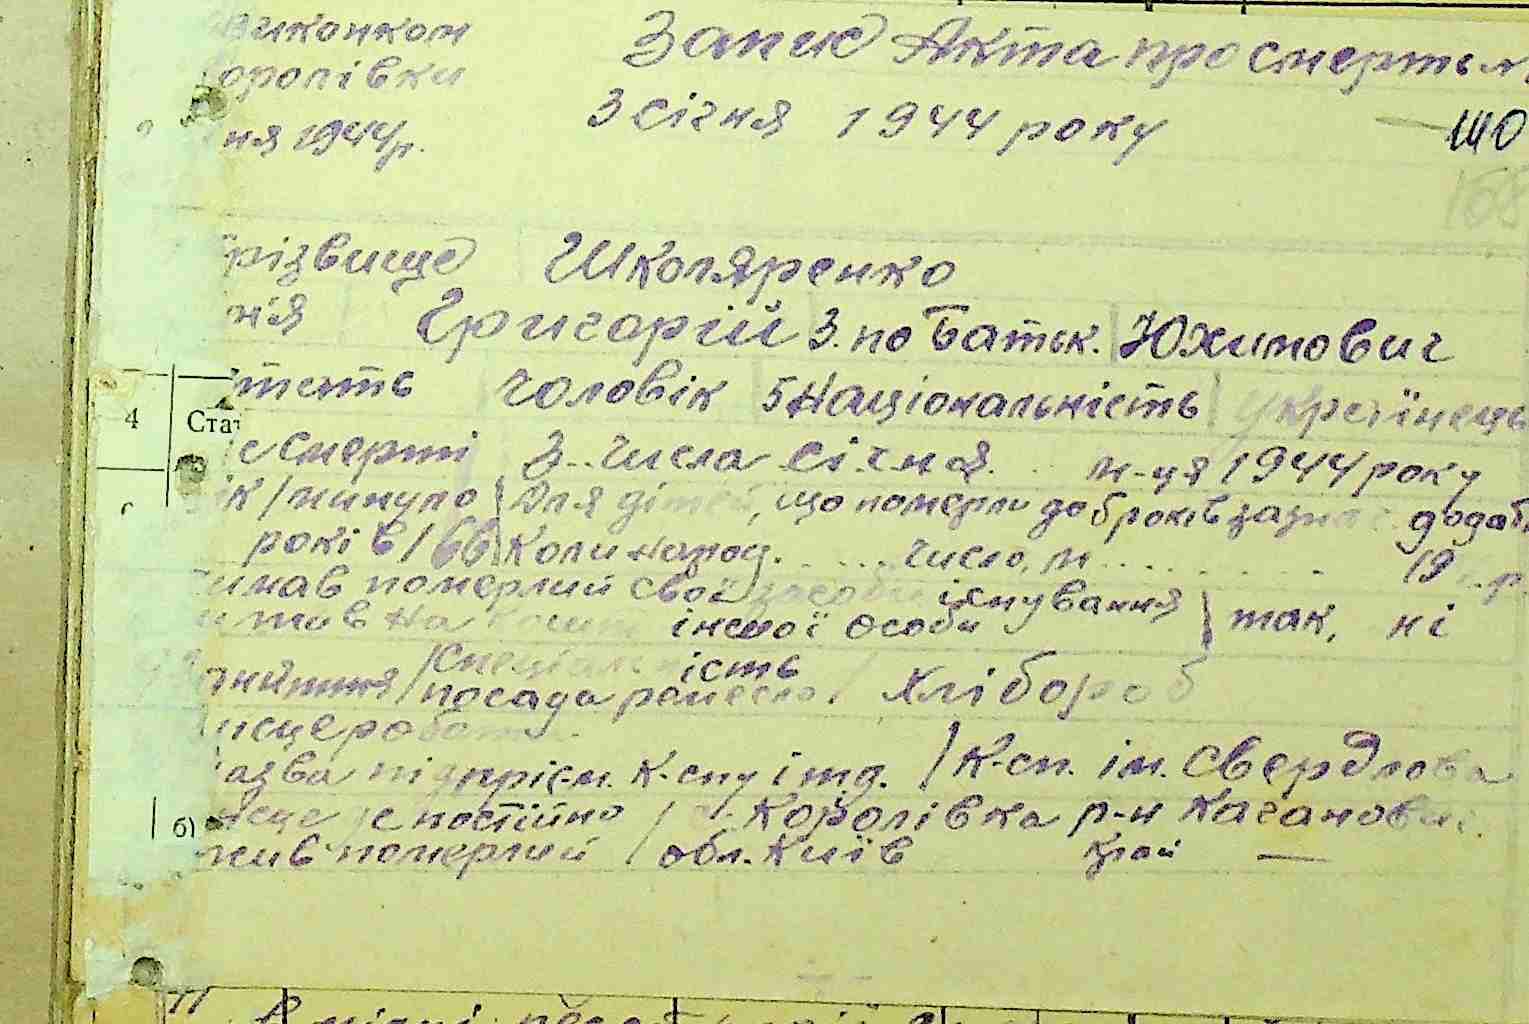 виконком Запис Акта про смерть №
оролівки
3 січня 1944 року
ня 1944р.
що
168
різвище Школяренко
ія Григорій 3. по Батьк. Юхимович
4
тать чоловік 5 Національність українець
Стат
с смерті 3. числа січня м-ця 1944 року
ік /минуло Для дітей, що померли до 6 років зазнач. додатк
років/ 66 коли народ. число, м. 19 р.
мав померлий свої засоби існування так, ні
жив на кошти іншої особи
спеціальність
посада ремесло / Хлібороб
місце роботи
назва підприєм. К-спу і т.д. / К-сп. ім. Свердлова
б)
місце де постійно / с. Королівка р-н Каганович.
жив померлий / обл. Київ край —